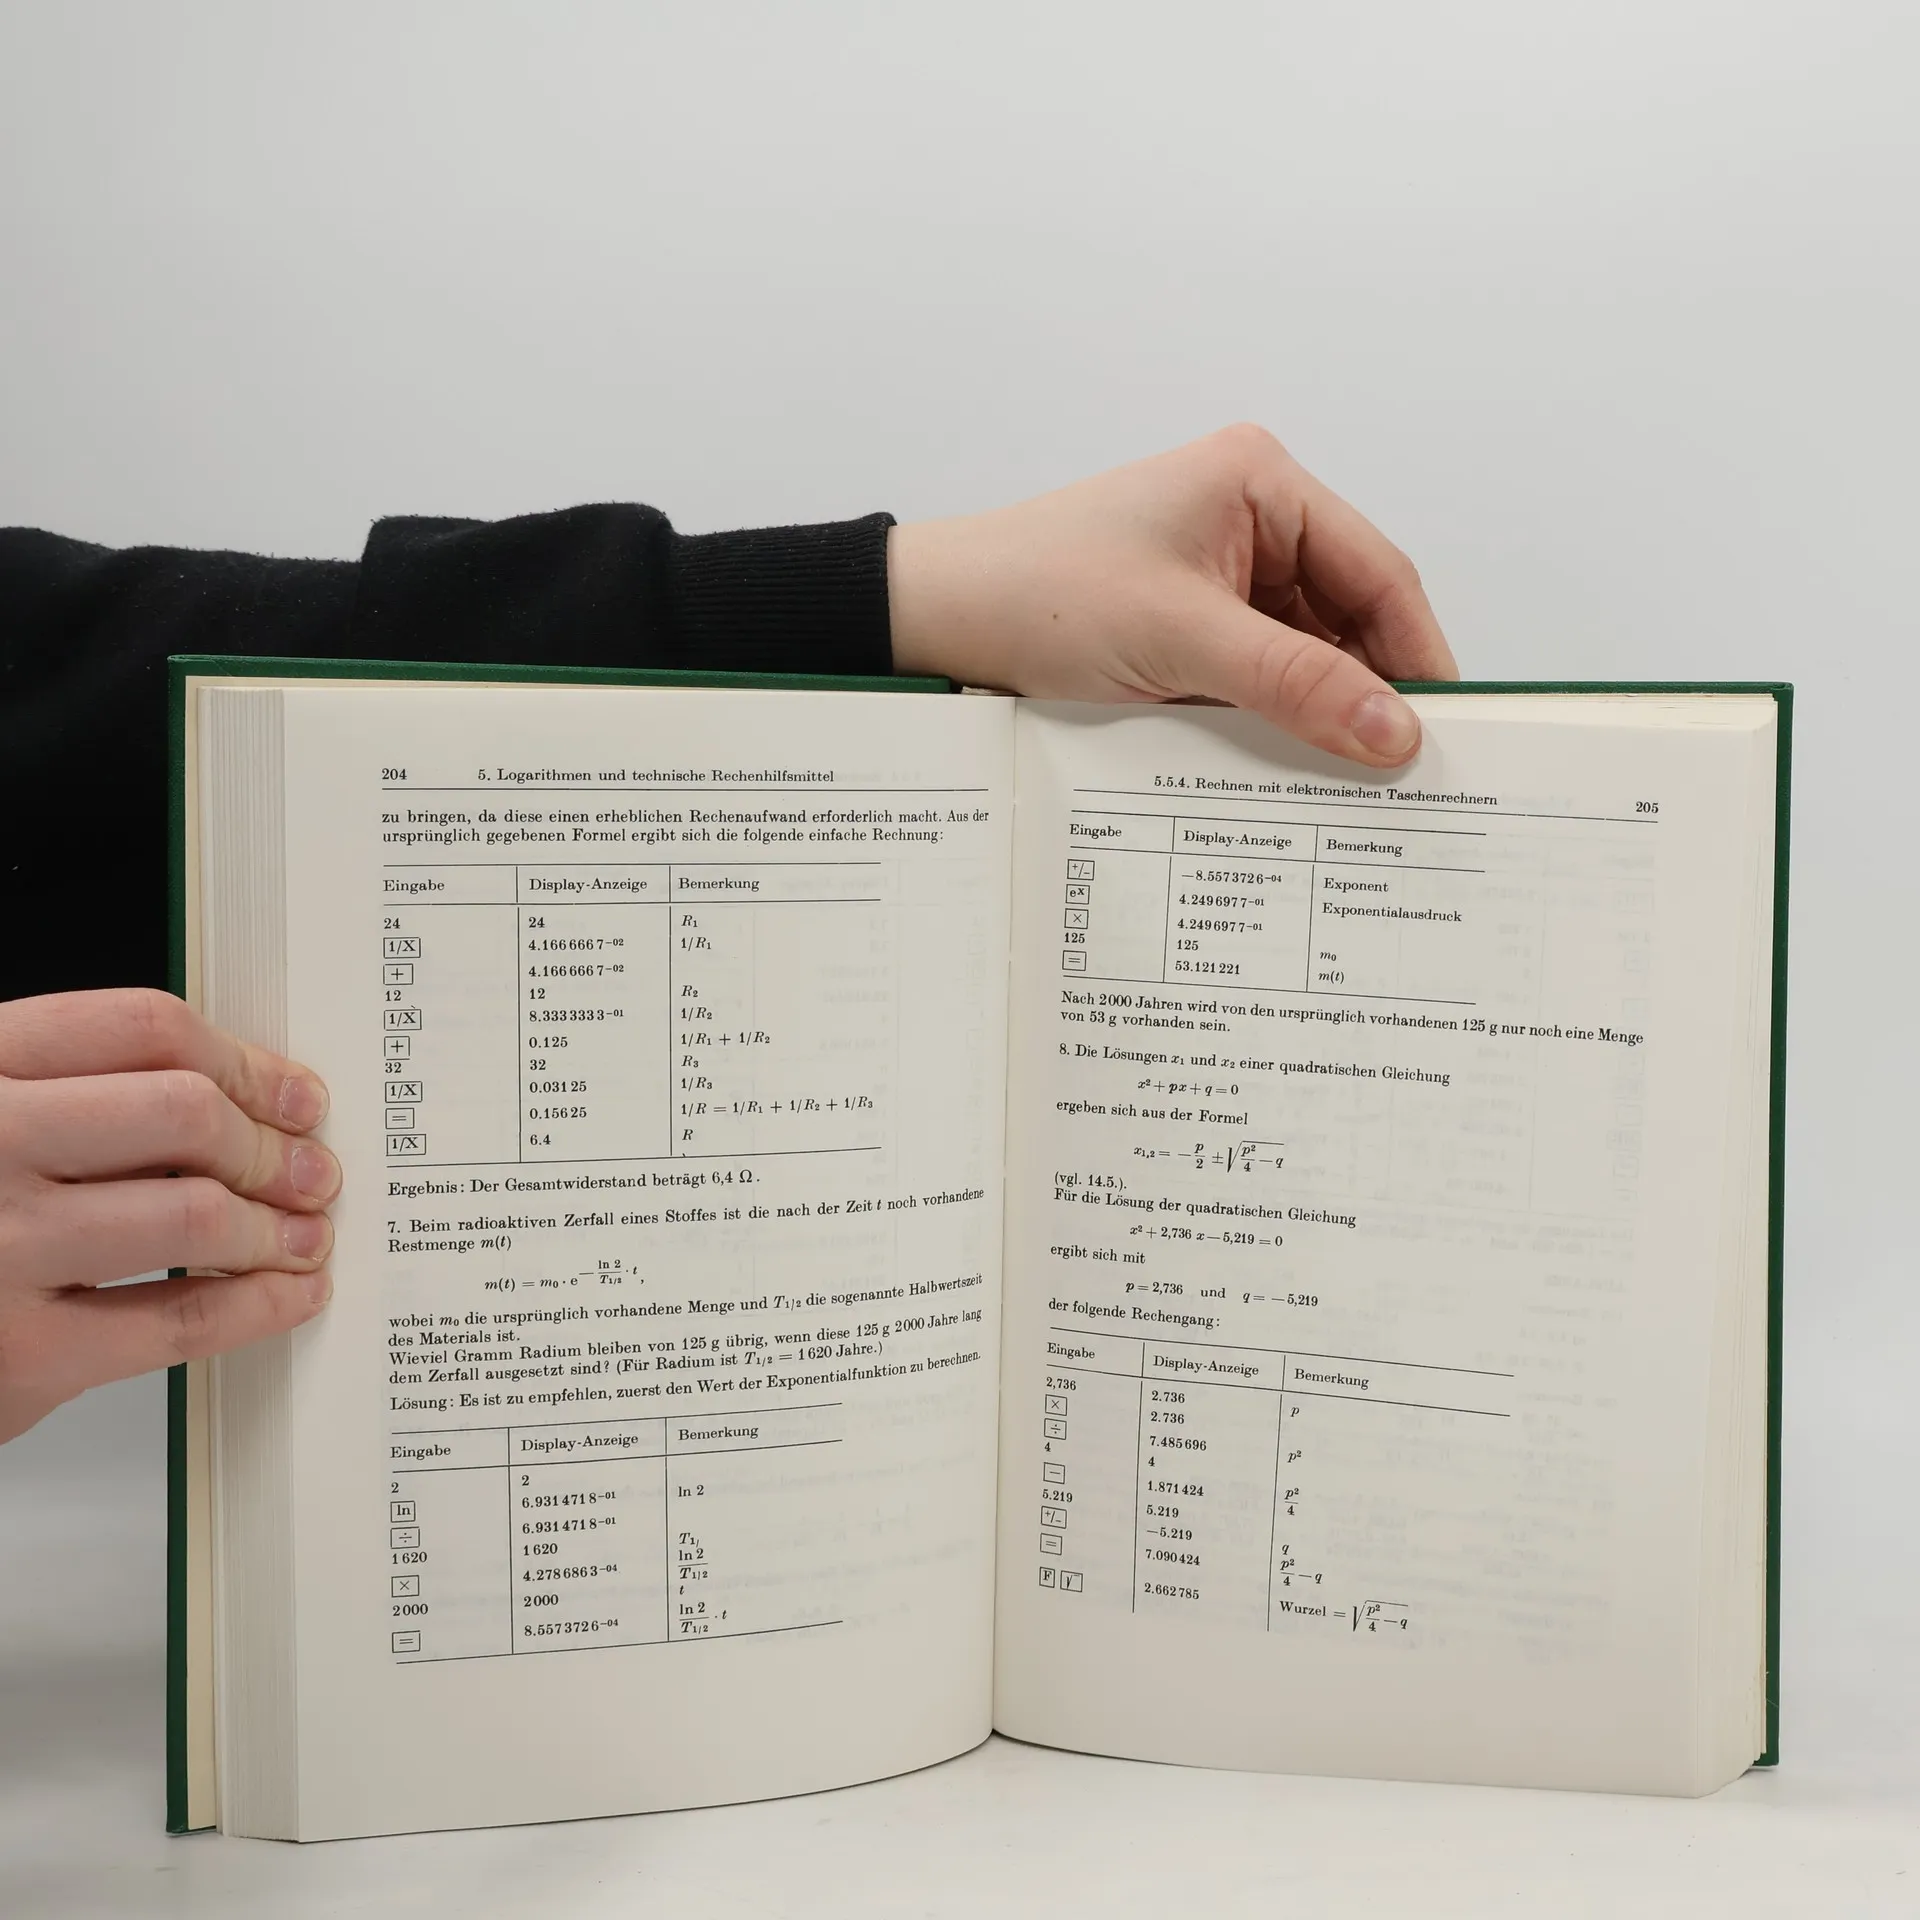 204 5. Logarithmen und technische Rechenhilfsmittel
zu bringen, da diese einen erheblichen Rechenaufwand erforderlich macht. Aus der
ursprünglich gegebenen Formel ergibt sich die folgende einfache Rechnung:
Eingabe Display-Anzeige Bemerkung
24 24 R₁
1/X 4.1666667⁻⁰² 1/R₁
+ 4.1666667⁻⁰²
12 12 R₂
1/X 8.3333333⁻⁰¹ 1/R₂
+ 0.125 1/R₁ + 1/R₂
32 32 R₃
1/X 0.03125 1/R₃
= 0.15625 1/R = 1/R₁ + 1/R₂ + 1/R₃
1/X 6.4 R
Ergebnis: Der Gesamtwiderstand beträgt 6,4 Ω.
7. Beim radioaktiven Zerfall eines Stoffes ist die nach der Zeit t noch vorhandene
Restmenge m(t)
m(t) = m₀ · e^(− ln 2/T₁/₂ · t),
wobei m₀ die ursprünglich vorhandene Menge und T₁/₂ die sogenannte Halbwertszeit
des Materials ist.
Wieviel Gramm Radium bleiben von 125 g übrig, wenn diese 125 g 2000 Jahre lang
dem Zerfall ausgesetzt sind? (Für Radium ist T₁/₂ = 1620 Jahre.)
Lösung: Es ist zu empfehlen, zuerst den Wert der Exponentialfunktion zu berechnen.
Eingabe Display-Anzeige Bemerkung
2 2
ln 6.9314718⁻⁰¹ ln 2
÷ 6.9314718⁻⁰¹
1620 1620 T₁/
× 4.2786863⁻⁰⁴ ln 2/T₁/₂
2000 2000 t
= 8.5573726⁻⁰⁴ ln 2/T₁/₂ · t
5.5.4. Rechnen mit elektronischen Taschenrechnern 205
Eingabe Display-Anzeige Bemerkung
+/− −8.5573726⁻⁰⁴ Exponent
eˣ 4.2496977⁻⁰¹ Exponentialausdruck
× 4.2496977⁻⁰¹
125 125 m₀
= 53.121221 m(t)
Nach 2000 Jahren wird von den ursprünglich vorhandenen 125 g nur noch eine Menge
von 53 g vorhanden sein.
8. Die Lösungen x₁ und x₂ einer quadratischen Gleichung
x² + px + q = 0
ergeben sich aus der Formel
x₁,₂ = − p/2 ± √(p²/4 − q)
(vgl. 14.5.).
Für die Lösung der quadratischen Gleichung
x² + 2,736 x − 5,219 = 0
ergibt sich mit
p = 2,736 und q = −5,219
der folgende Rechengang:
Eingabe Display-Anzeige Bemerkung
2,736 2.736 p
× 2.736
÷ 7.485696 p²
4 4
− 1.871424 p²/4
5.219 5.219
+/− −5.219 q
= 7.090424 p²/4 − q
F √ 2.662785 Wurzel = √(p²/4 − q)